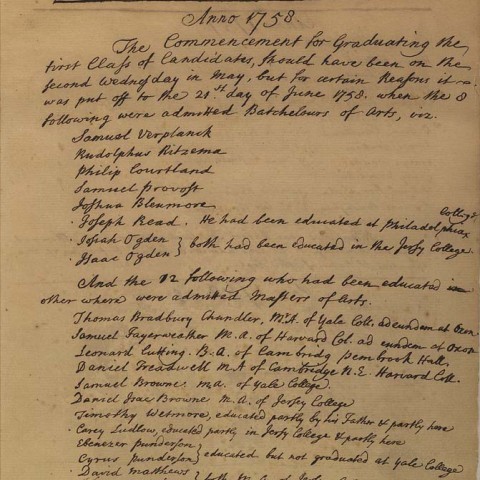 Anno 1758.
The Commencement for Graduating the
first Class of Candidates, should have been on the
second Wednesday in May, but for certain Reasons it
was put off to the 21st day of June 1758. when the 8
following were admitted Batchelours of Arts, viz.
Samuel Verplanck
Rudolphus Ritzema
Philip Courtland
Samuel Provost
Joshua Bloomore
Joseph Read. He had been educated at Philadelphia College
Josiah Ogden } both had been educated in the Jersy College
Isaac Ogden
And the 12 following who had been educated
other where were admitted Masters of Arts.
Thomas Bradbury Chandler, M.A. of Yale Coll. ad eundem at Oxon.
Samuel Fayerweather M.A. of Harvard Col. ad eundem at Oxon
Leonard Cutting. B.A. of Cambridg Pembrook Hall.
Daniel Treadwell M.A of Cambridge N.E. Harvard Coll.
Samuel Browne M.A. of Yale College
Daniel Isac Browne M.A. of Jersy College
Timothy Wetmore, educated partly by his Father & partly here
Carey Ludlow, educated partly in Jersy College & partly here
Ebenezer Punderson
Cyrus Punderson } educated but not graduated at Yale College
David Matthews